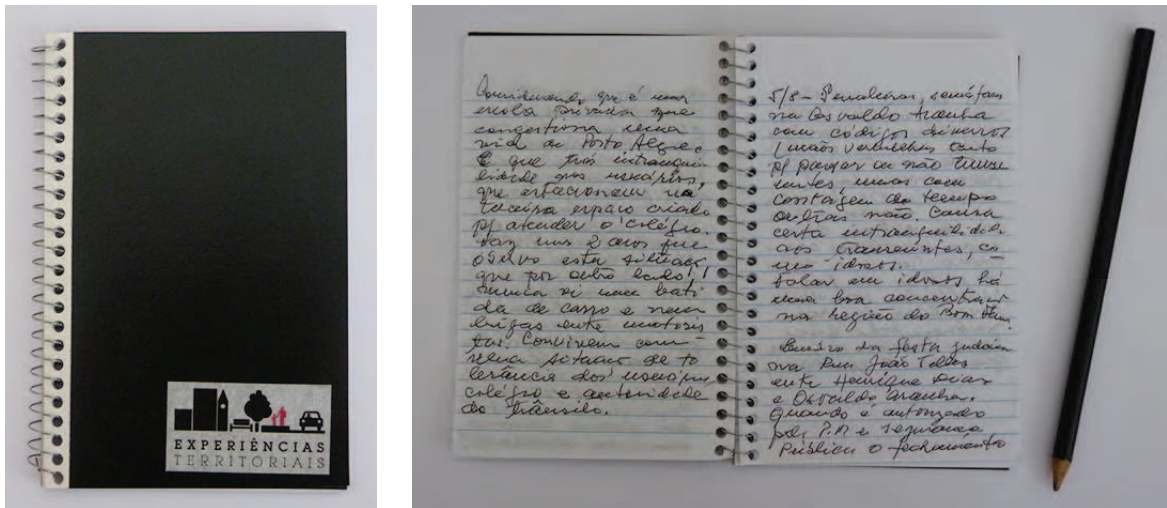 EXPERIÊNCIAS
TERRITORIAIS
Considerando que é uma
escola privada que
congestiona uma
vial de Porto Alegre
E que trás intranqui
lidade aos usuários,
que estacionam na
terceira espaço criado
p/ atender o colégio.
Faz uns 2 anos que
observo esta situação
que por outro lado!!
nunca vi uma bati
da de carro e nem
brigas entre motoris
tas. Convivem com
uma situac de to
lerância dos usuários
colégio e autoridade
do trânsito.
5/8 - Pemaleiras, semáforo
na Osvaldo Aranha
com códigos diversos
(mãos vermelhas tanto
p/ parar ou não
umas com
contagem do tempo
outras não. Causa
certa intranquilidade
aos transeuntes, co
mo idosos.
Falar em idosos há
uma boa concentração
na região do Bom Fim.
da festa judaica
na Rua João Telles
entre Henrique Dias
e Osvaldo Aranha.
Quando é autorizado
pela P.M e segurança
Pública o fechamento